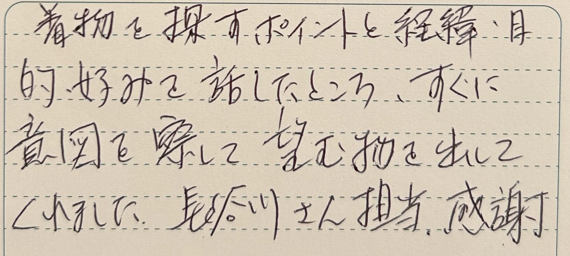 着物を探すポイントと経緯・目
的・好みを話したところ、すぐに
意図を察して望む物を出して
くれました。長谷川さん担当、感謝